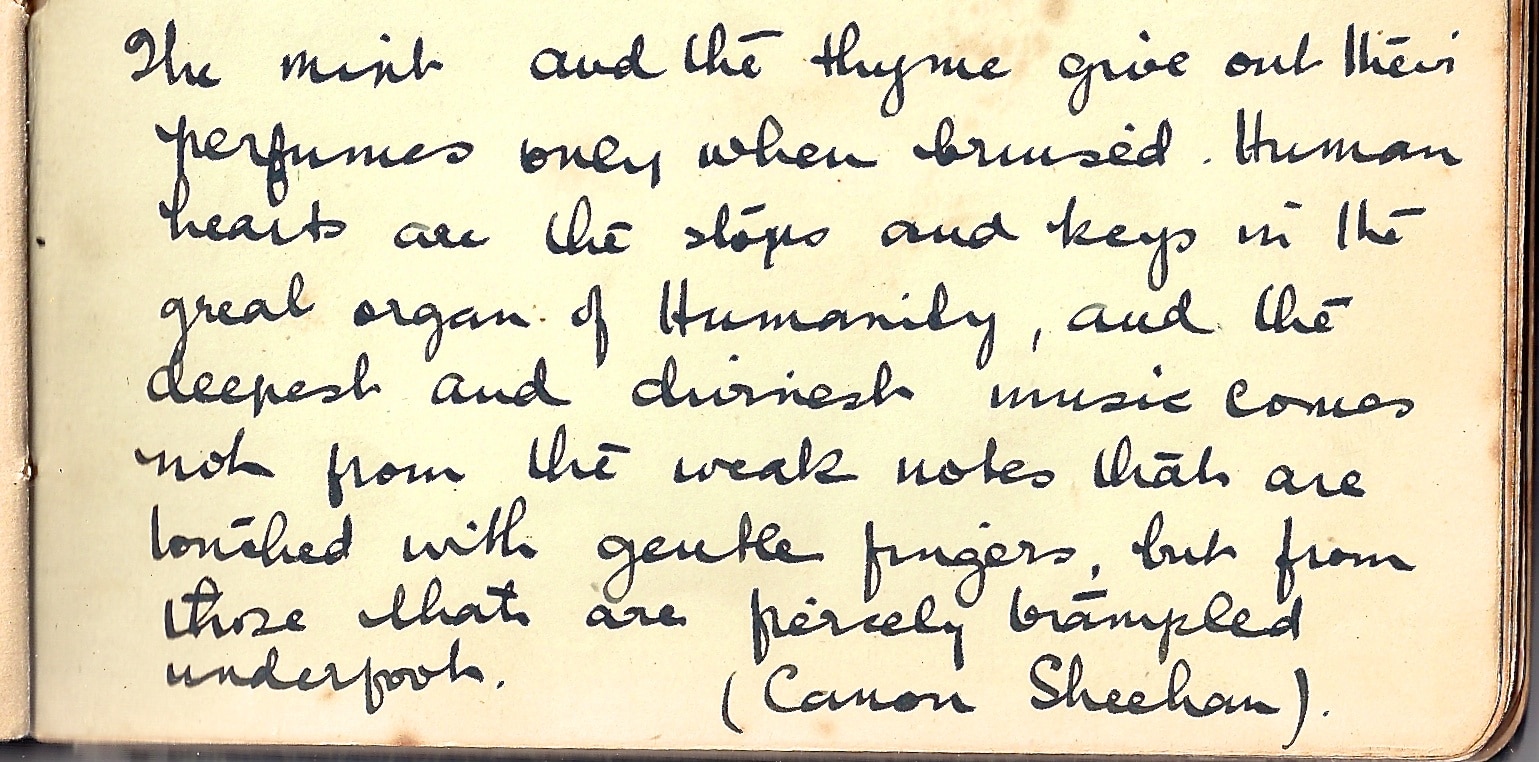 The mint and the thyme give out their
perfumes only when bruised. Human
hearts are the stops and keys in the
great organ of Humanity, and the
deepest and divinest music comes
not from the weak notes that are
touched with gentle fingers, but from
those that are fiercely trampled
underfoot. (Canon Sheehan).